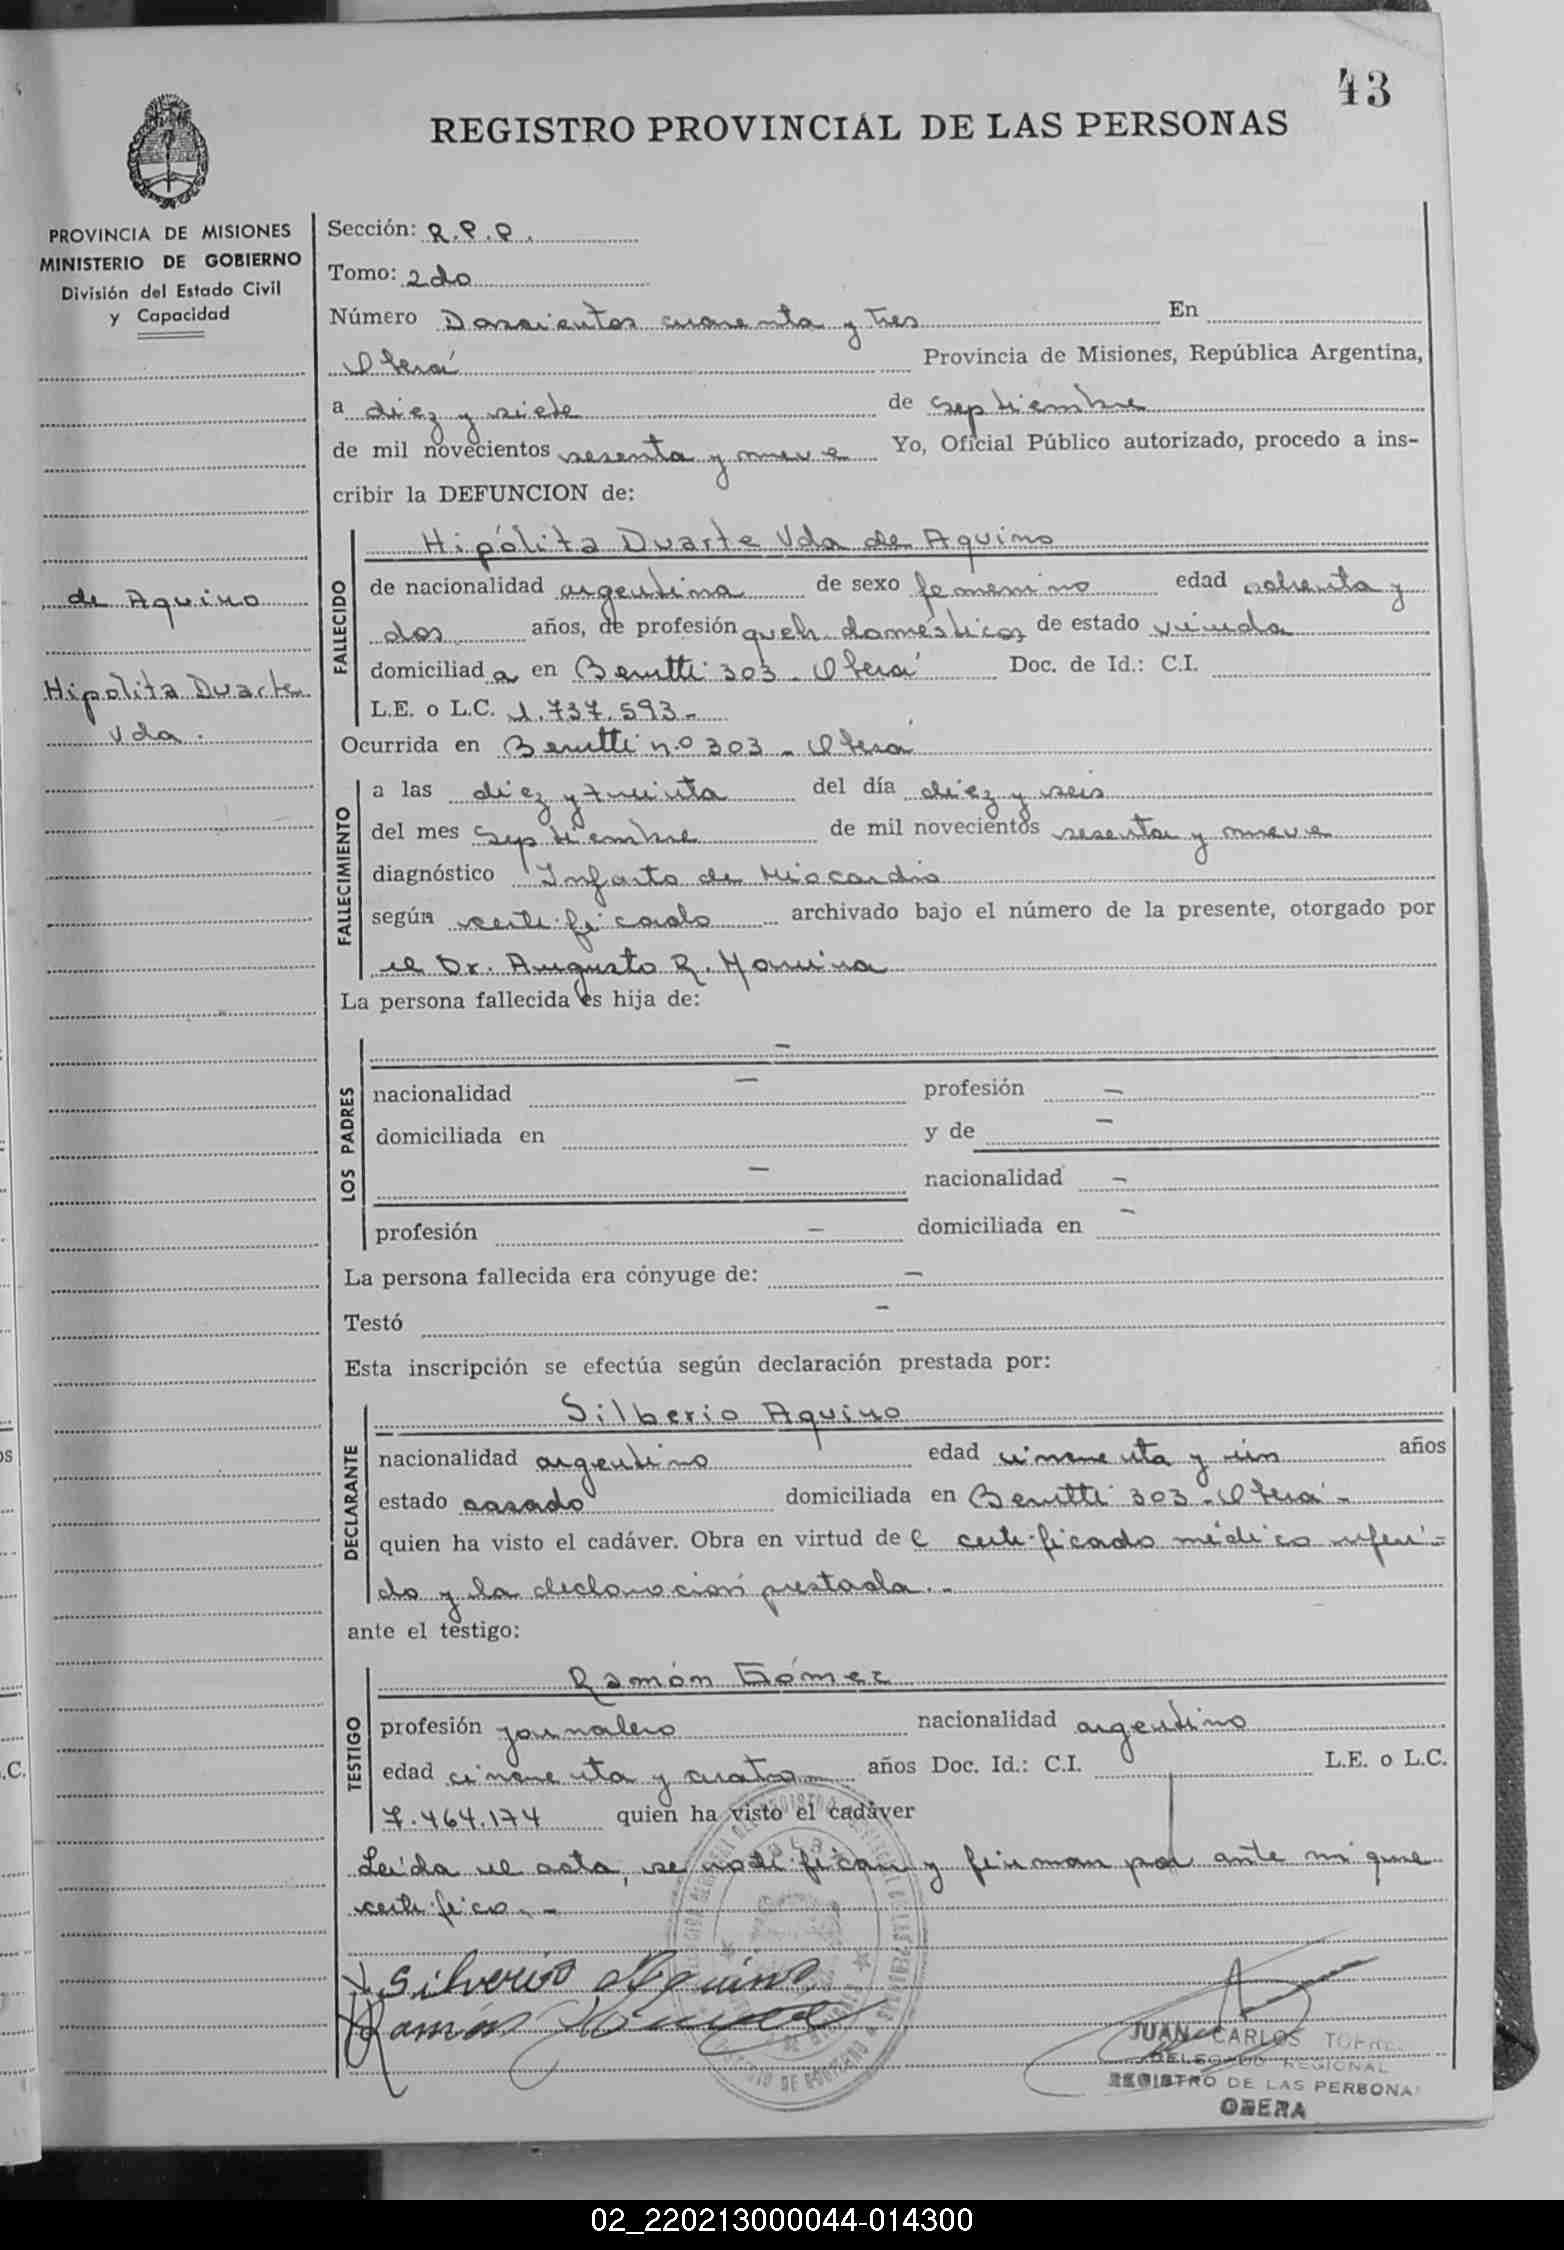 43
REGISTRO PROVINCIAL DE LAS PERSONAS
PROVINCIA DE MISIONES
MINISTERIO DE GOBIERNO
División del Estado Civil
y Capacidad
de Aquino
Hipólita Duarte
Vda.
Sección: R.P.P.
Tomo: 2do
Número Doscientos cuarenta y tres En
Oberá Provincia de Misiones, República Argentina,
a diez y siete de septiembre
de mil novecientos sesenta y nueve Yo, Oficial Público autorizado, procedo a ins-
cribir la DEFUNCION de:
FALLECIDO
Hipólita Duarte Vda de Aquino
de nacionalidad argentina de sexo femenino edad ochenta y
dos años, de profesión queh. domésticos de estado viuda
domiciliada en Berutti 303 - Oberá Doc. de Id.: C.I.
L.E. o L.C. 1.737.593-
Ocurrida en Berutti n.o 303 - Oberá
FALLECIMIENTO
a las diez y treinta del día diez y seis
del mes septiembre de mil novecientos sesenta y nueve
diagnóstico Infarto de Miocardio
según certificado archivado bajo el número de la presente, otorgado por
el Dr. Augusto R.
La persona fallecida es hija de:
LOS PADRES
-
nacionalidad - profesión -
domiciliada en y de -
- nacionalidad -
profesión - domiciliada en -
La persona fallecida era cónyuge de: -
Testó -
Esta inscripción se efectúa según declaración prestada por:
DECLARANTE
Silberio Aquino
nacionalidad argentino edad cincuenta y un años
estado casado domiciliada en Berutti 303 - Oberá -
quien ha visto el cadáver. Obra en virtud del certificado médico referi-
do y la declaración prestada.-
ante el testigo:
TESTIGO
Ramón Gómez
profesión jornalero nacionalidad argentino
edad cincuenta y cuatro años Doc. Id.: C.I. L.E. o L.C.
7.464.174 quien ha visto el cadáver
Leída el acta, se notifican y firman por ante mi que
certifico.-
Silverio Aquino
Ramón Gómez
JUAN CARLOS
DELEGADO REGIONAL
REGISTRO DE LAS PERSONAS
OBERA
02_220213000044-014300